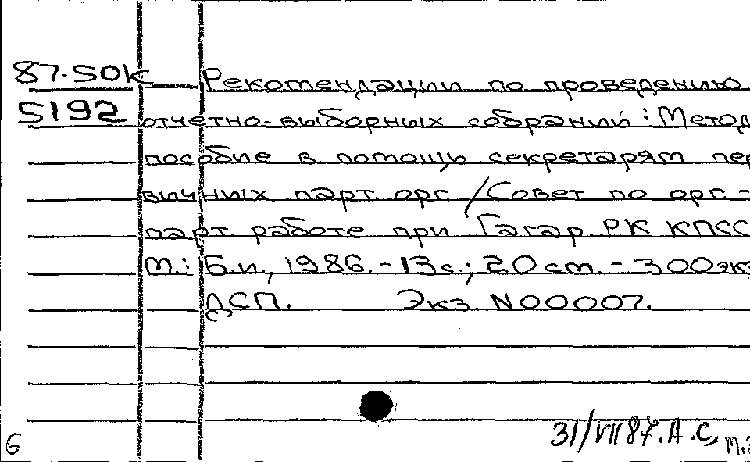 87-50К Рекомендации по проведению
5192 отчетно-выборных собраний : Метод
пособие в помощь секретарям пер
вичных парт орг / Совет по орг.-
парт работе при Гагар. РК КПСС
М.: Б.и., 1986.-13с.; 20 ст. - 300 эк
ДСП. Экз N00007.
31/VII 87. А.С.
6